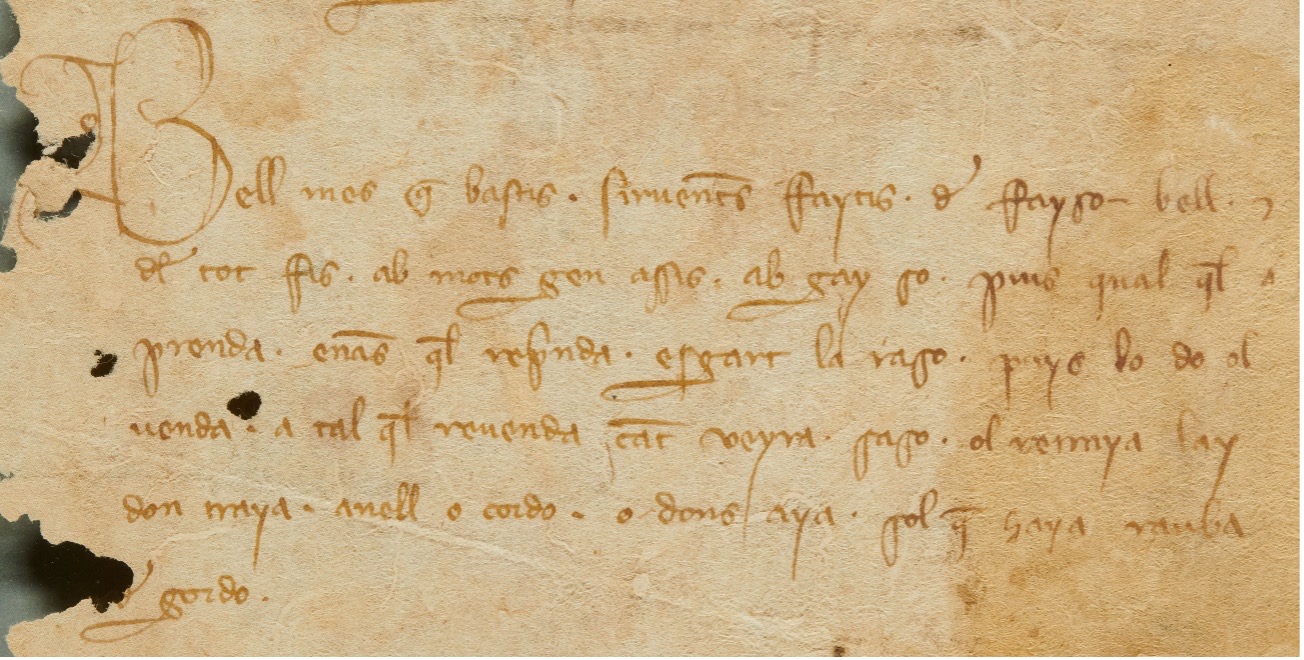 Bell mes q̄ bastis · siruent̄s ffaytis · d' ffayso bell ·
del tot ffis · ab mots gen assis · ab gay so · puis qual q̄l
prenda · enās q̄l rep̄nda · esgart la raso · puys lo do ol
uenda · a tal q̄l reuenda cāt veyra saso · ol remya lay
don traya · anell o cordo · o dons aya · sol q̄ haya rauba
gordo ·